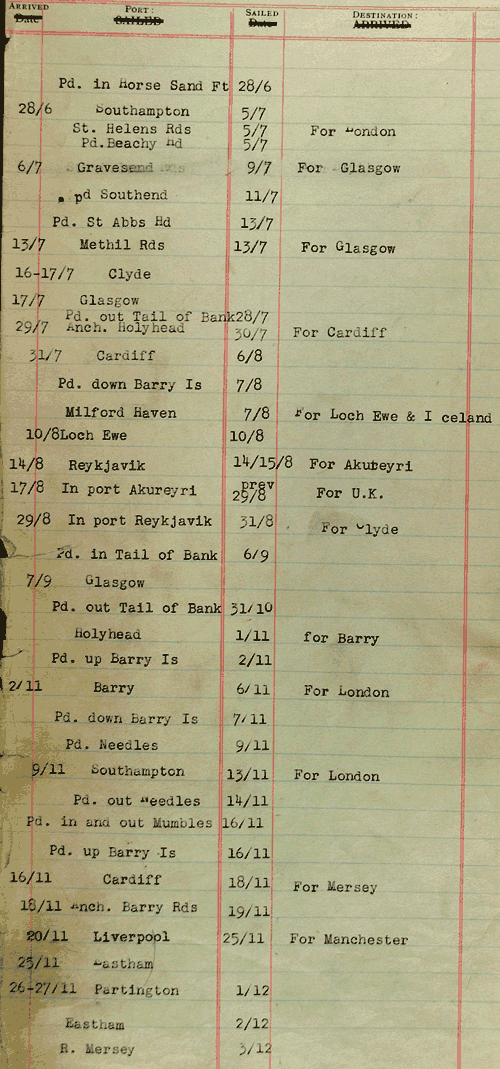 ARRIVED PORT: SAILED DESTINATION:
Date SAILED Date ARRIVED
Pd. in Horse Sand Ft 28/6
28/6 Southampton 5/7
St. Helens Rds 5/7 For London
Pd.Beachy Hd 5/7
6/7 Gravesend 9/7 For Glasgow
pd Southend 11/7
Pd. St Abbs Hd 13/7
13/7 Methil Rds 13/7 For Glasgow
16-17/7 Clyde
17/7 Glasgow
Pd. out Tail of Bank28/7
29/7 Anch. Holyhead 30/7 For Cardiff
31/7 Cardiff 6/8
Pd. down Barry Is 7/8
Milford Haven 7/8 For Loch Ewe & I celand
10/8Loch Ewe 10/8
14/8 Reykjavik 14/15/8 For Akuteyri
17/8 In port Akureyri prev 29/8 For U.K.
29/8 In port Reykjavik 31/8 For Clyde
Pd. in Tail of Bank 6/9
7/9 Glasgow
Pd. out Tail of Bank 31/10
Holyhead 1/11 for Barry
Pd. up Barry Is 2/11
2/11 Barry 6/11 For London
Pd. down Barry Is 7/11
Pd. Needles 9/11
9/11 Southampton 13/11 For London
Pd. out Needles 14/11
Pd. in and out Mumbles 16/11
Pd. up Barry Is 16/11
16/11 Cardiff 18/11 For Mersey
18/11 Anch. Barry Rds 19/11
20/11 Liverpool 25/11 For Manchester
25/11 Eastham
26-27/11 Partington 1/12
Eastham 2/12
R. Mersey 3/12